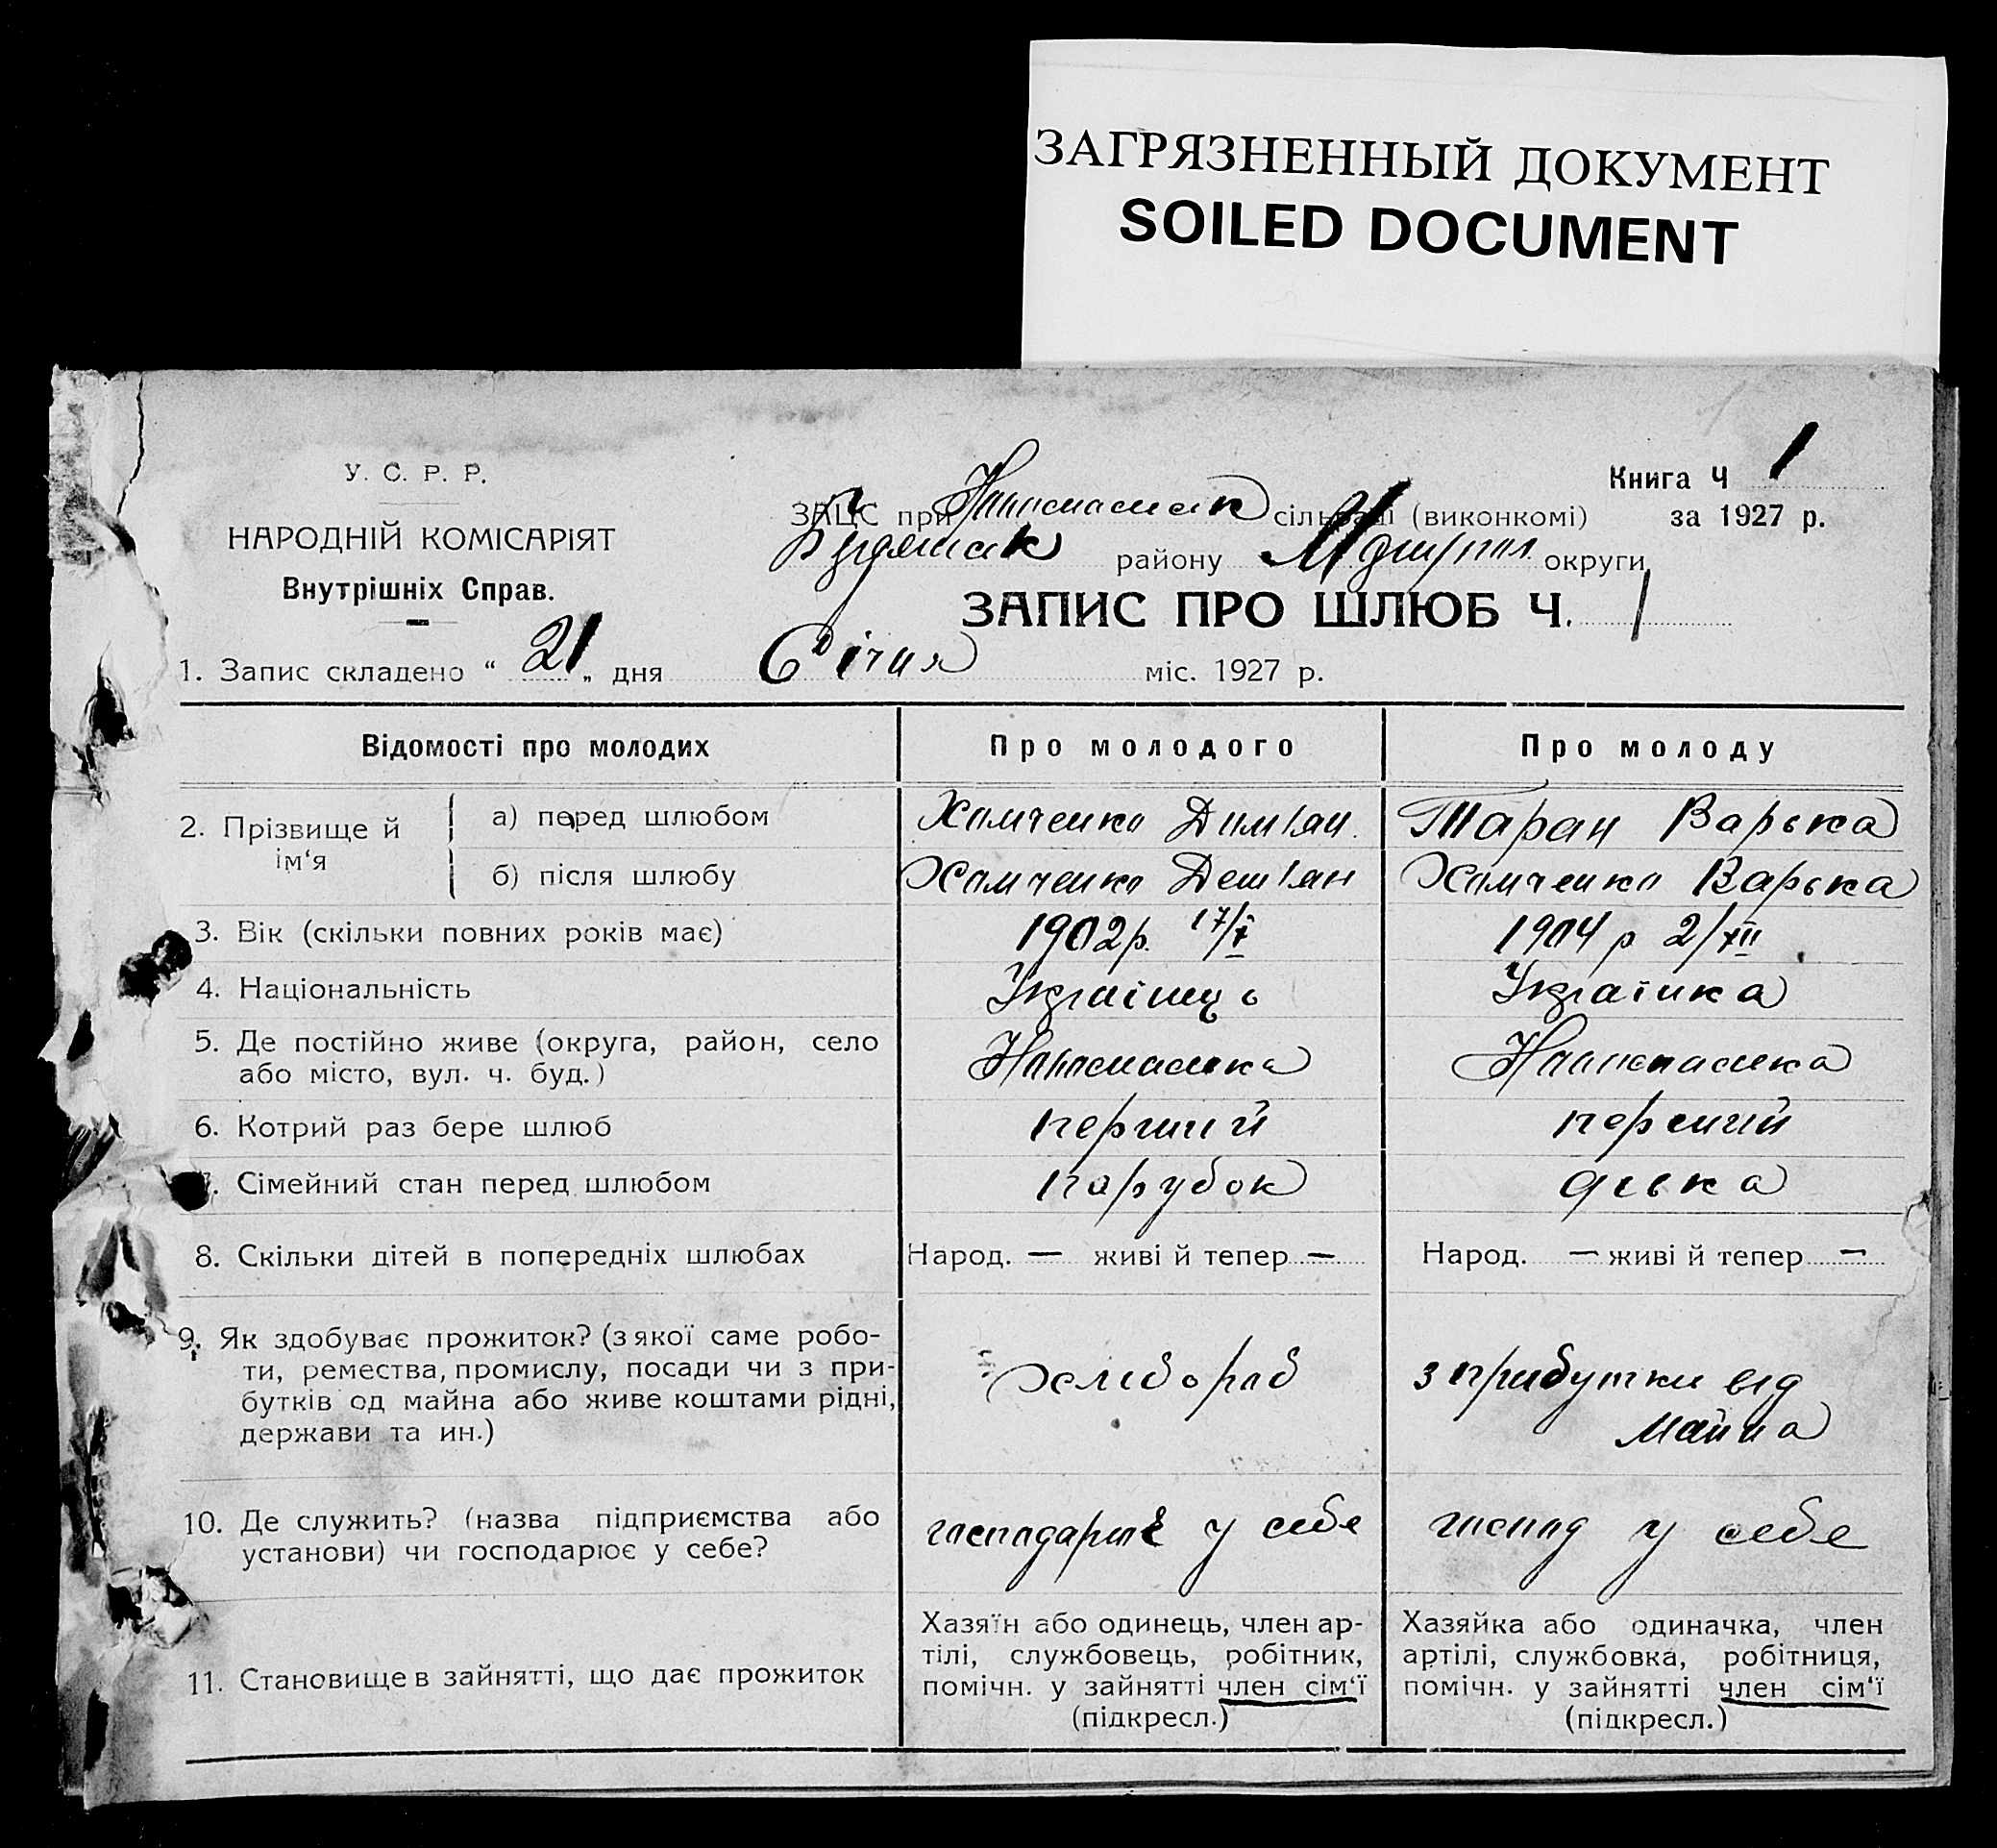 ЗАГРЯЗНЕННЫЙ ДОКУМЕНТ
SOILED DOCUMENT
Книга Ч 1
У. С. Р. Р.
ЗАЦС при Новоспаськ сільраді (виконкомі) за 1927 р.
НАРОДНІЙ КОМІСАРІЯТ
району округи
Внутрішніх Справ.
ЗАПИС ПРО ШЛЮБ Ч. 1
1. Запис складено “ 21 „ дня Січня міс. 1927 р.
Відомості про молодих Про молодого Про молоду
2. Прізвище й ім‘я
а) перед шлюбом Хомченко Димʼян Таран Варька
б) після шлюбу Хомченко Демʼян Хомченко Варька
3. Вік (скільки повних років має) 1902р. 17/X 1904 р 2/XII
4. Національність Українць Українка
5. Де постійно живе (округа, район, село Новоспаська Новоспаська
або місто, вул. ч. буд.)
6. Котрий раз бере шлюб перший перший
7. Сімейний стан перед шлюбом парубок дівка
8. Скільки дітей в попередніх шлюбах Народ. — живі й тепер — Народ. — живі й тепер —
9. Як здобуває прожиток? (з якої саме робо-
ти, ремества, промислу, посади чи з при- хлібороб з прибутки від
бутків од майна або живе коштами рідні, майна
держави та ин.)
10. Де служить? (назва підприємства або господарює у себе господ у себе
установи) чи господарює у себе?
11. Становище в зайнятті, що дає прожиток
Хазяїн або одинець, член ар-
тілі, службовець, робітник,
помічн. у зайнятті член сім‘ї
(підкресл.)
Хазяйка або одиначка, член
артілі, службовка, робітниця,
помічн. у зайнятті член сім‘ї
(підкресл.)